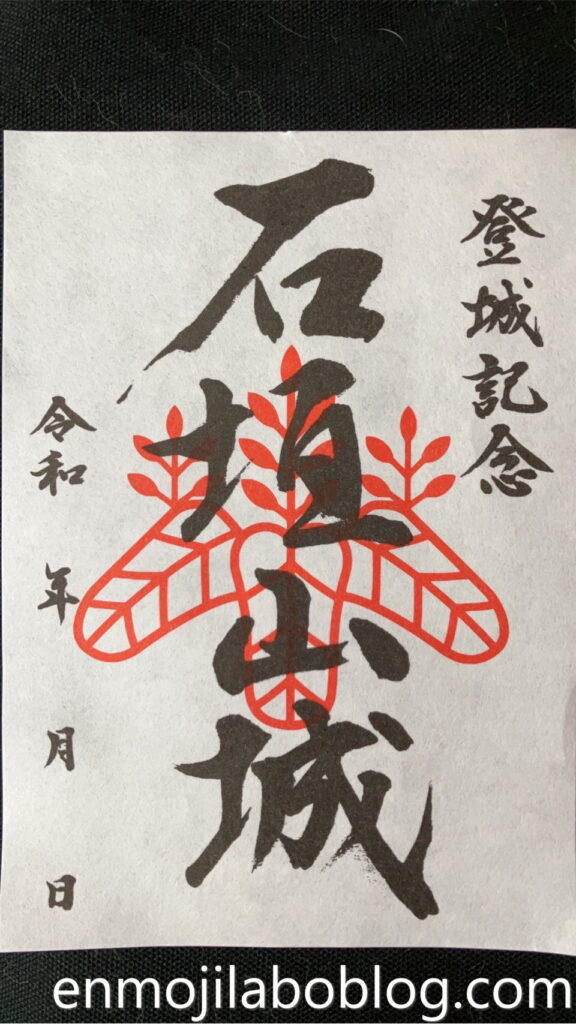 登城記念
石垣山城
令和 年 月 日
enmojilaboblog.com